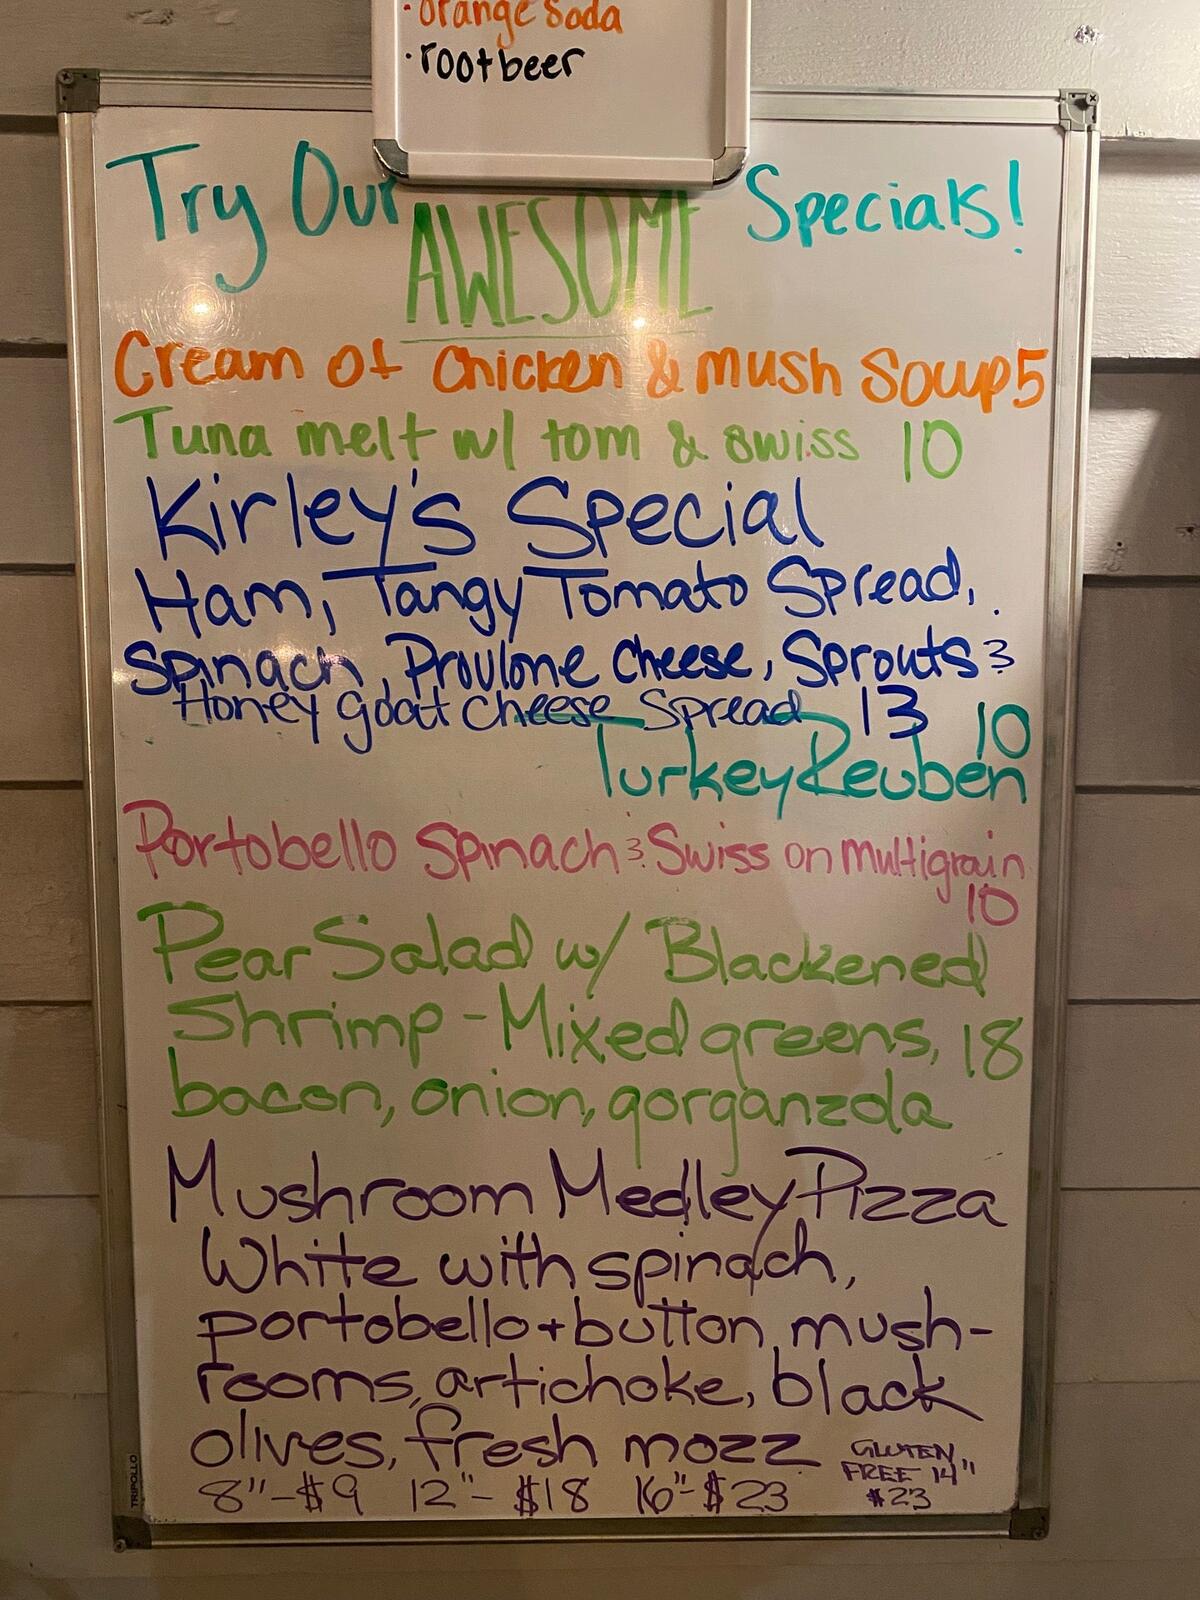 ·orange soda
·rootbeer
Try Our AWESOME Specials!
Cream of Chicken & Mush Soup 5
Tuna melt w/ tom & swiss 10
Kirley's Special
Ham, Tangy Tomato Spread,
Spinach, Provlone Cheese, Sprouts &
Honey Goat Cheese Spread 13
10
Turkey Reuben
Portobello Spinach & Swiss on Multigrain
10
Pear Salad w/ Blackened
Shrimp - Mixed greens, 18
bacon, onion, gorganzola
Mushroom Medley Pizza
White with spinach,
portobello + button mush-
rooms, artichoke, black
olives, fresh mozz
8"-$9 12"-$18 16"-$23
GLUTEN
FREE 14"
$23
TRIPOLLO